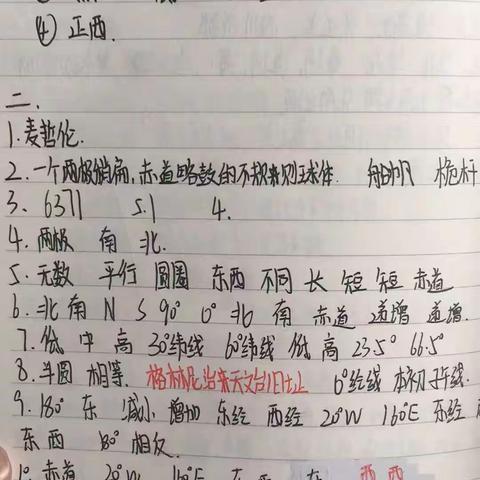 (4) 正西.
二.
1.麦哲伦.
2.一个两极稍扁,赤道略鼓的不规则球体. 船帆 桅杆
3. 6371 5.1 4.
4.两极 南 北.
5.无数 平行 圆圈 东西 不同 长 短 短 赤道
6.北 南 N S 90° 0° 北 南 赤道 递增 递增.
7.低 中 高 30°纬线 60°纬线 低 高 23.5° 66.5°
8.半圆 相等. 格林尼治天文台旧址 0°经线 本初子午线.
9. 180° 东 减小 增加 东经 西经 20°W 160°E 东经
东西 180° 相反.
赤道 20°W 160°E 西 西